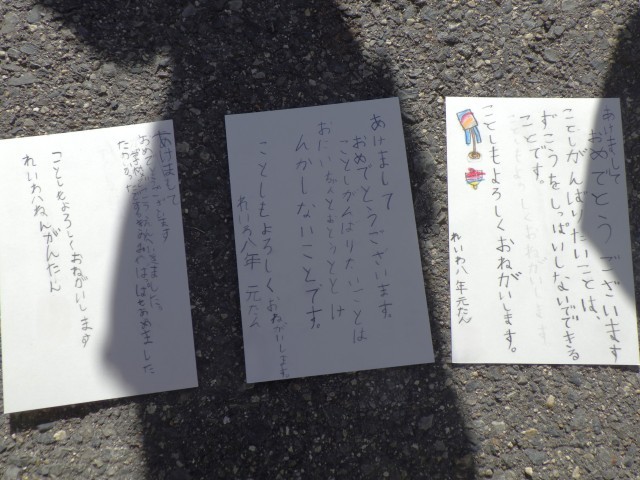 あけまして
おめでとうございます
ことしもよろしくおねがいします
れいわ八ねんがんたん
あけまして
おめでとうございます。
ことしがんばりたいことは
おにいちゃんとおとうととけ
んかしないことです。
ことしもよろしくおねがいします
れいわ八年 元たん
あけまして
おめでとうございます
ことしがんばりたいことは、
ずこうをしっぱいしないでできる
ことです。
ことしもよろしくおねがいします。
れいわ八年元たん